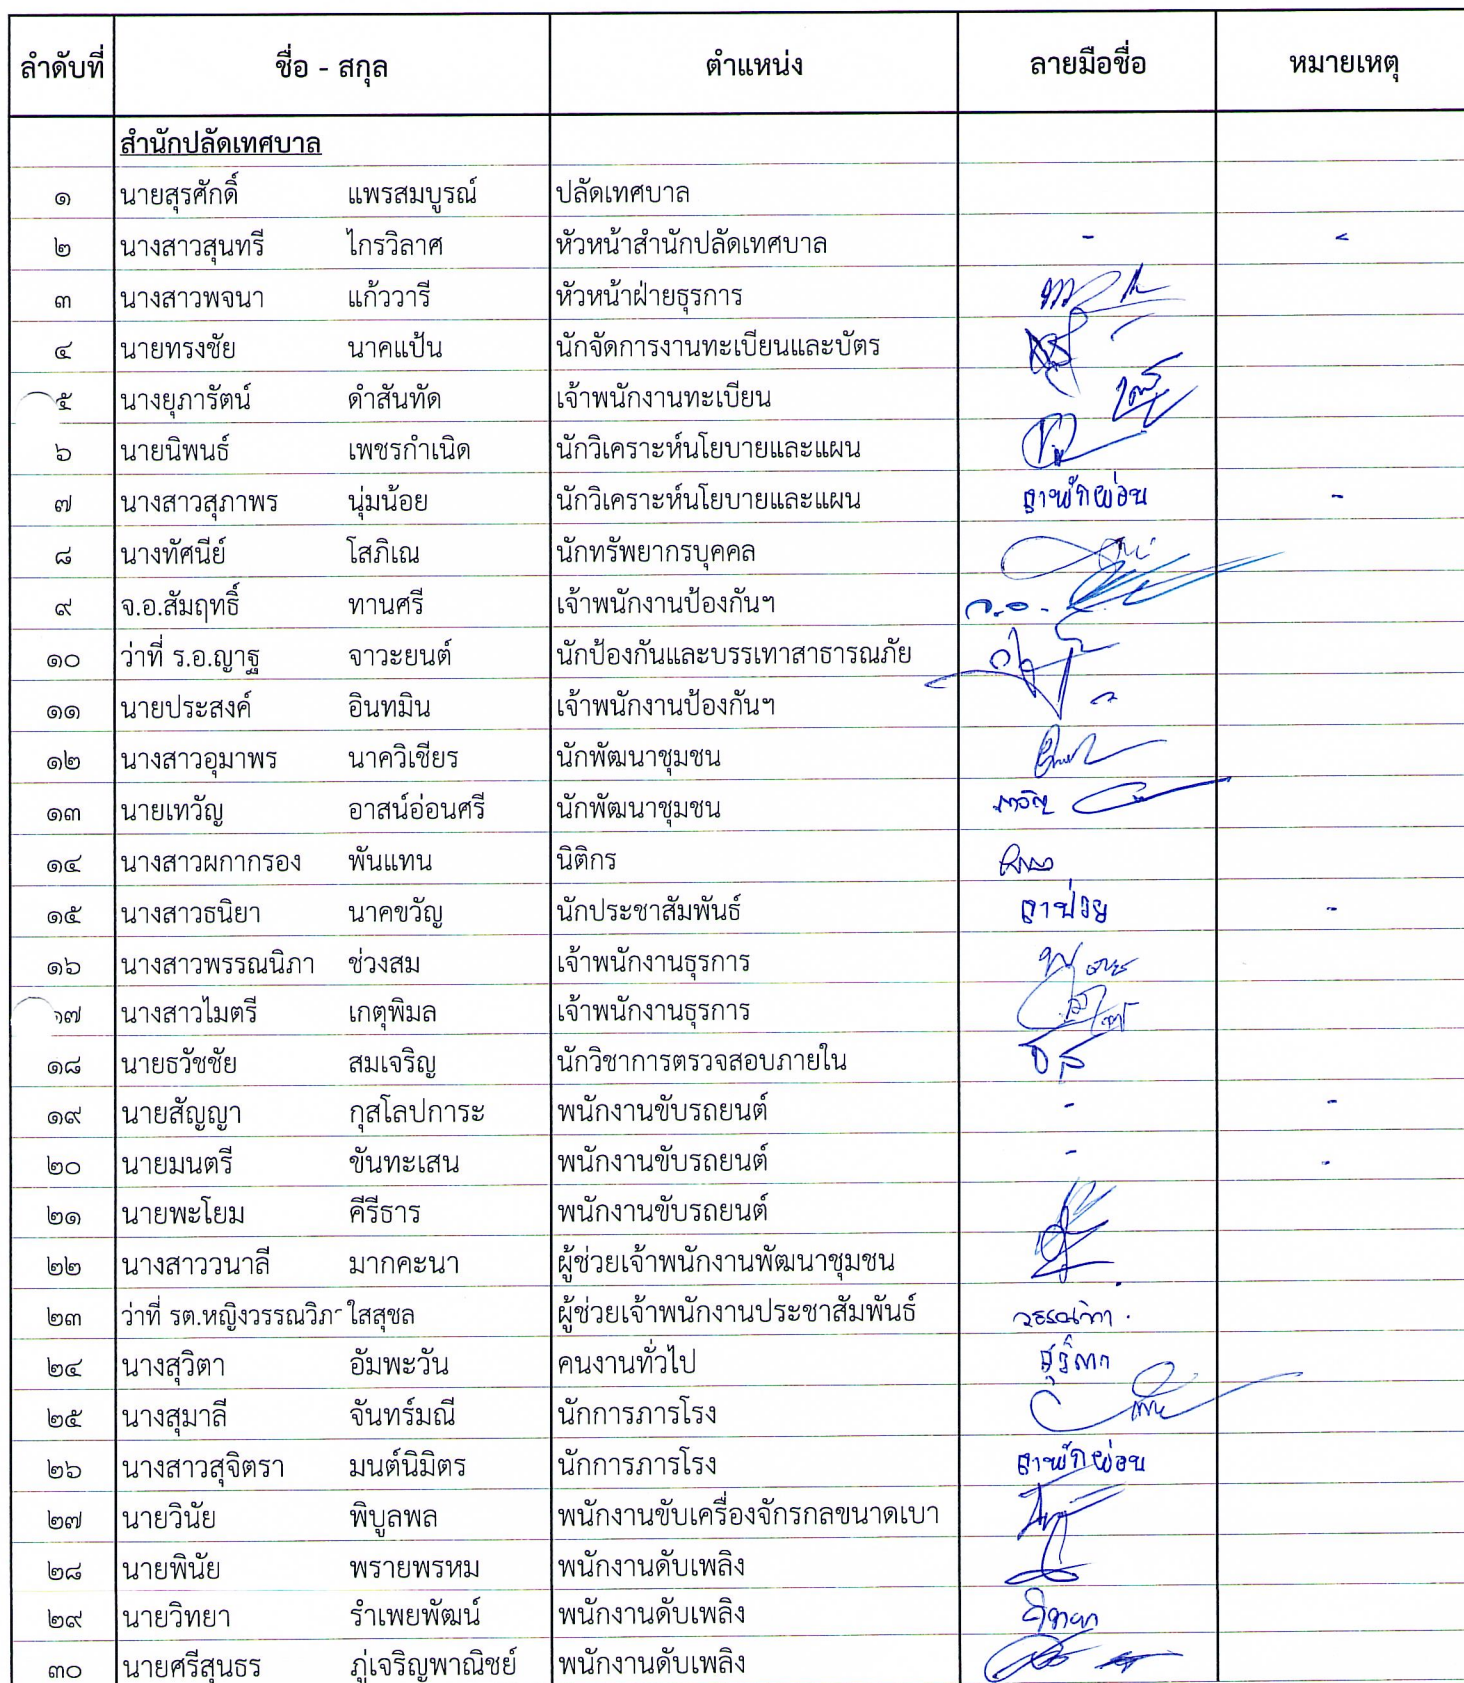 ลำดับที่ ชื่อ - สกุล ตำแหน่ง ลายมือชื่อ หมายเหตุ
สำนักปลัดเทศบาล
๑ นายสุรศักดิ์ แพรสมบูรณ์ ปลัดเทศบาล
๒ นางสาวสุนทรี ไกรวิลาศ หัวหน้าสำนักปลัดเทศบาล - -
๓ นางสาวพจนา แก้ววารี หัวหน้าฝ่ายธุรการ
๔ นายทรงชัย นาคแป้น นักจัดการงานทะเบียนและบัตร
๕ นางยุภารัตน์ ดำสันทัด เจ้าพนักงานทะเบียน
๖ นายนิพนธ์ เพชรกำเนิด นักวิเคราะห์นโยบายและแผน
๗ นางสาวสุภาพร นุ่มน้อย นักวิเคราะห์นโยบายและแผน ลาพักผ่อน -
๘ นางทัศนีย์ โสภิเณ นักทรัพยากรบุคคล
๙ จ.อ.สัมฤทธิ์ ทานศรี เจ้าพนักงานป้องกันฯ จ.อ.
๑๐ ว่าที่ ร.อ.ญาฐ จาวะยนต์ นักป้องกันและบรรเทาสาธารณภัย
๑๑ นายประสงค์ อินทมิน เจ้าพนักงานป้องกันฯ
๑๒ นางสาวอุมาพร นาควิเชียร นักพัฒนาชุมชน
๑๓ นายเทวัญ อาสน์อ่อนศรี นักพัฒนาชุมชน เทวัญ
๑๔ นางสาวผกากรอง พันแทน นิติกร
๑๕ นางสาวธนิยา นาคขวัญ นักประชาสัมพันธ์ ลาป่วย -
๑๖ นางสาวพรรณนิภา ช่วงสม เจ้าพนักงานธุรการ
๑๗ นางสาวไมตรี เกตุพิมล เจ้าพนักงานธุรการ
๑๘ นายธวัชชัย สมเจริญ นักวิชาการตรวจสอบภายใน
๑๙ นายสัญญา กุสโลปการะ พนักงานขับรถยนต์ - -
๒๐ นายมนตรี ขันทะเสน พนักงานขับรถยนต์ - -
๒๑ นายพะโยม คีรีธาร พนักงานขับรถยนต์
๒๒ นางสาววนาลี มากคะนา ผู้ช่วยเจ้าพนักงานพัฒนาชุมชน
๒๓ ว่าที่ รต.หญิงวรรณวิภา ใสสุชล ผู้ช่วยเจ้าพนักงานประชาสัมพันธ์ วรรณวิภา
๒๔ นางสุวิตา อัมพะวัน คนงานทั่วไป
๒๕ นางสุมาลี จันทร์มณี นักการภารโรง
๒๖ นางสาวสุจิตรา มนต์นิมิตร นักการภารโรง ลาพักผ่อน
๒๗ นายวินัย พิบูลพล พนักงานขับเครื่องจักรกลขนาดเบา
๒๘ นายพินัย พรายพรหม พนักงานดับเพลิง
๒๙ นายวิทยา รำเพยพัฒน์ พนักงานดับเพลิง วิทยา
๓๐ นายศรีสุนธร ภู่เจริญพาณิชย์ พนักงานดับเพลิง